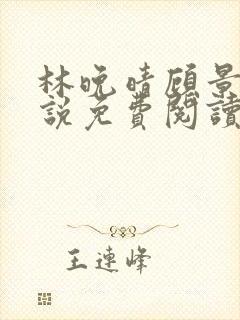 林晚晴顾景
說免費閱讀
王連峰